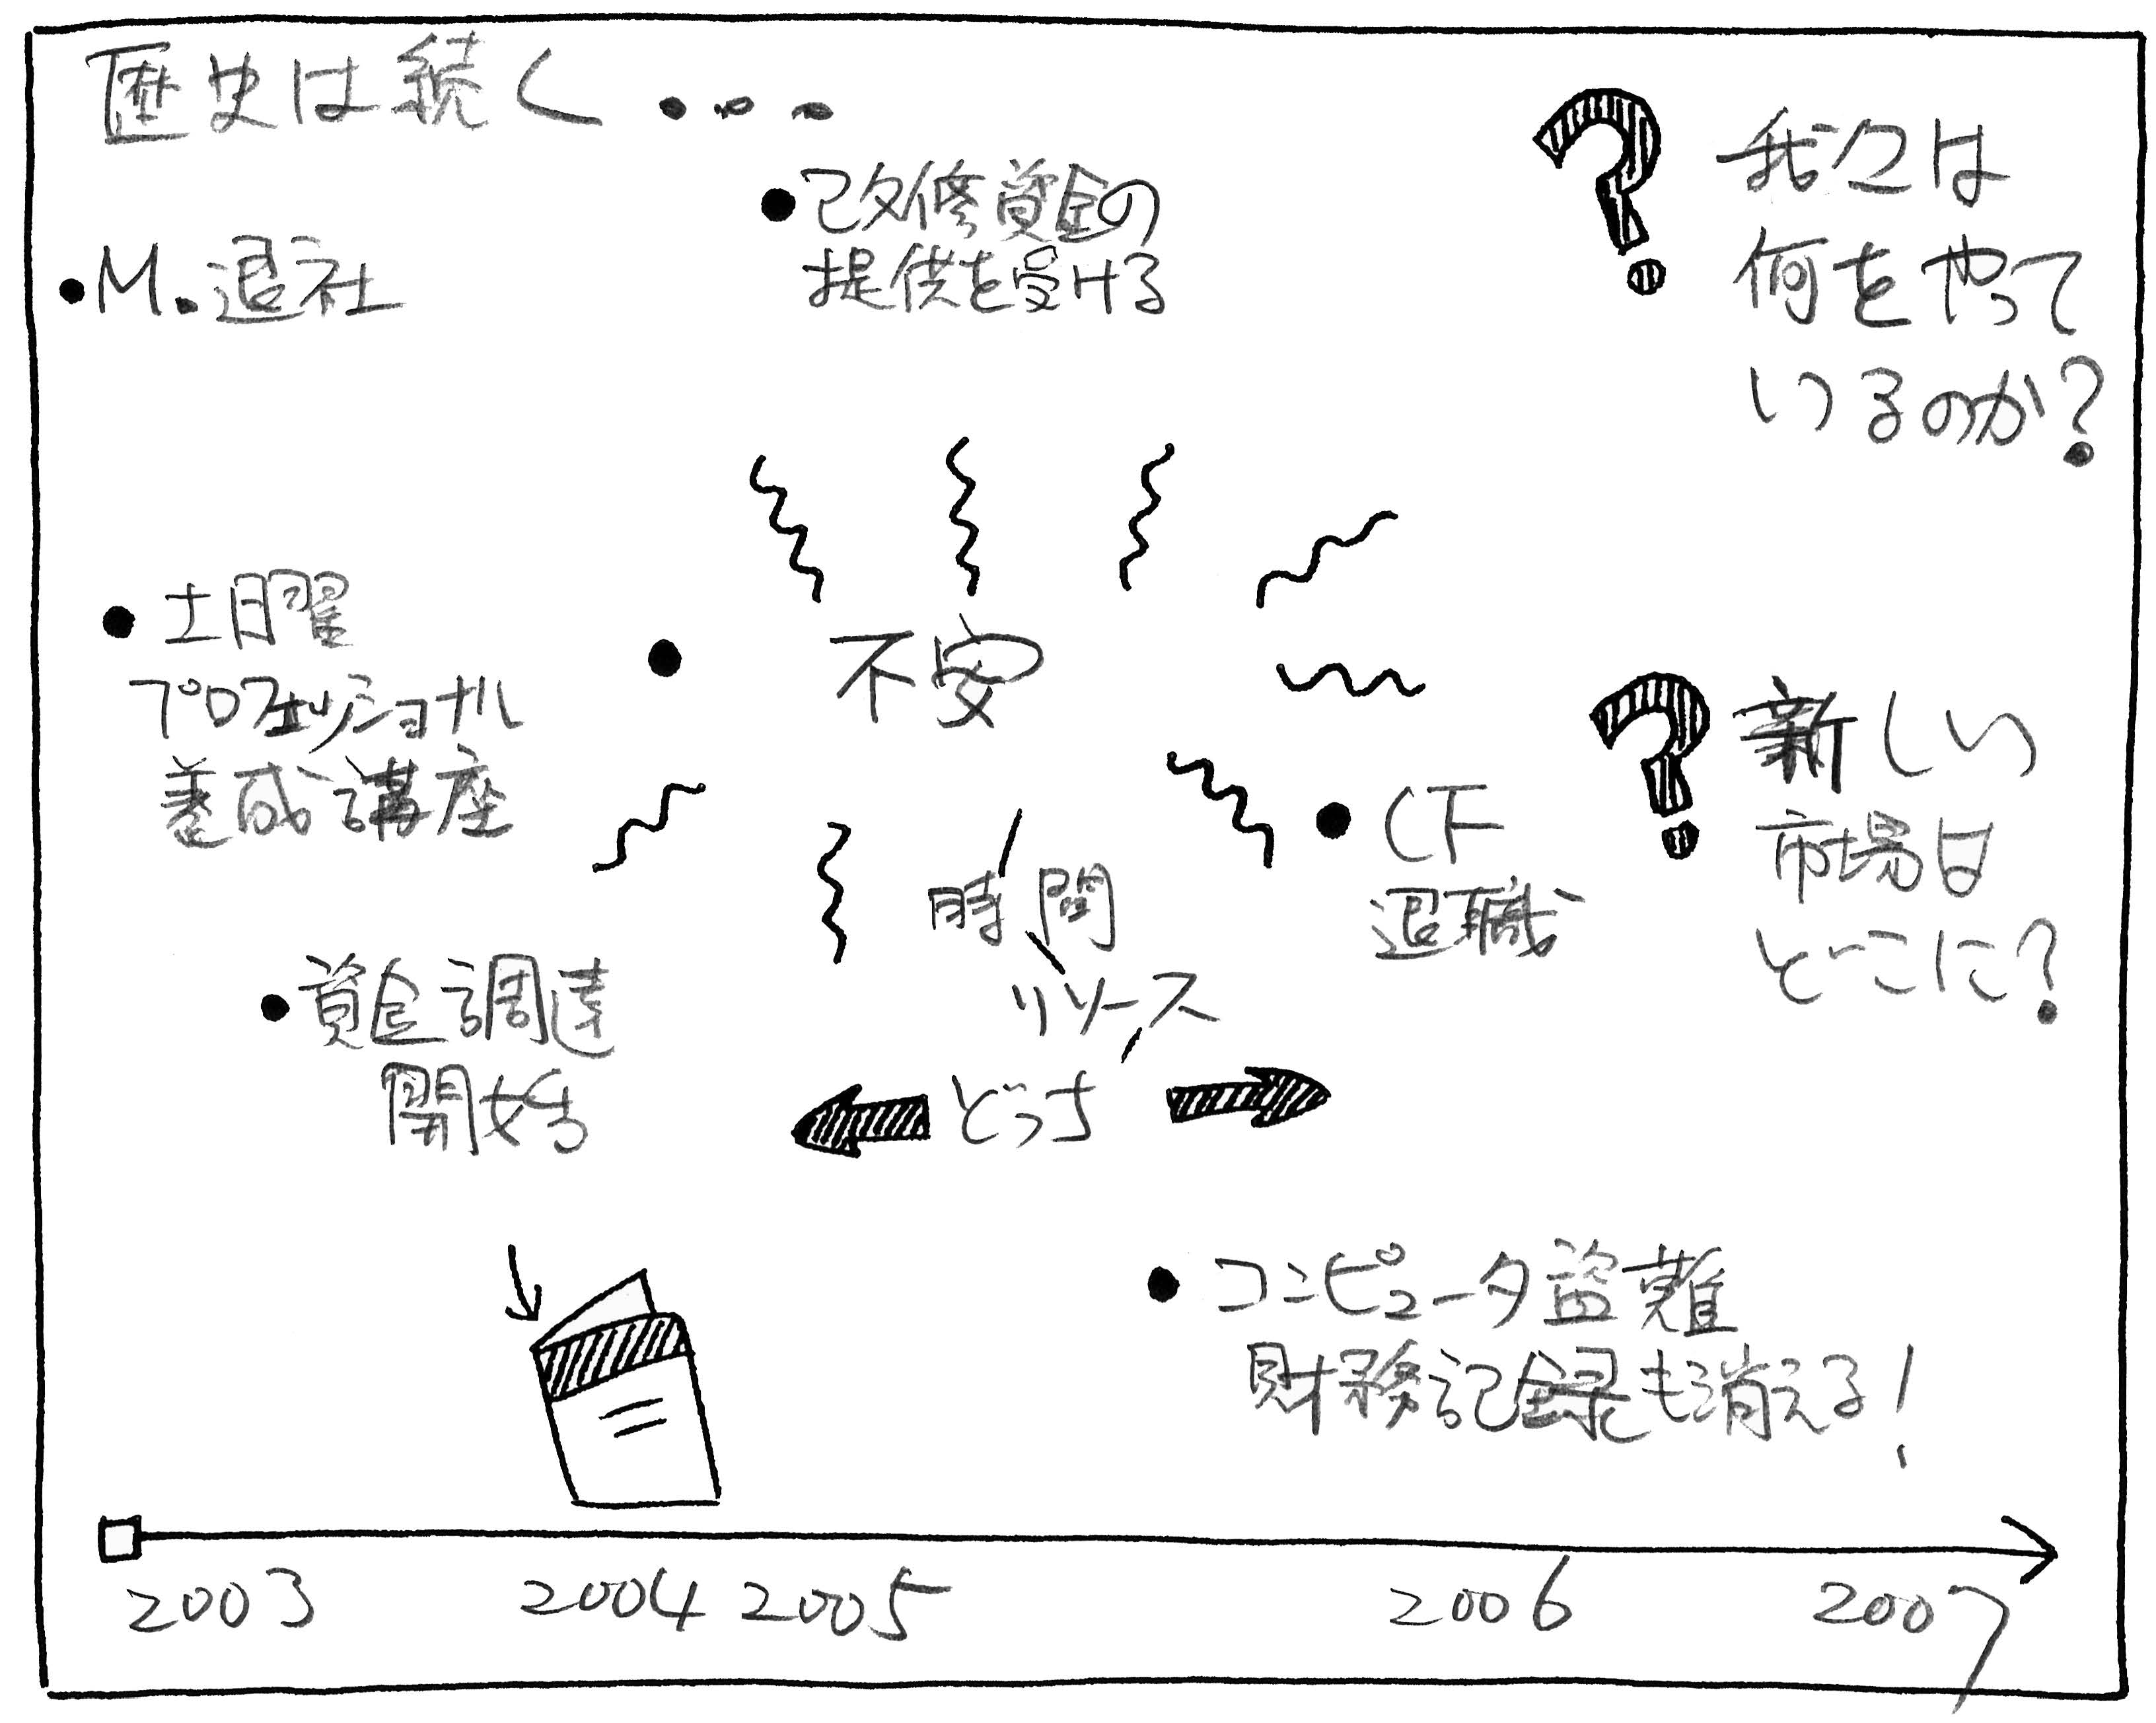 歴史は続く・・・
•M.退社
•改修資金の
提供を受ける
?我々は
何をやって
いるのか?
•土日曜
プロフェッショナル
養成講座
•不安
?新しい
市場は
どこに?
•CF
退職
時間
リソース
どっち
•資金調達
開始
•コンピュータ盗難
財務記録も消える!
2003 2004 2005 2006 2007